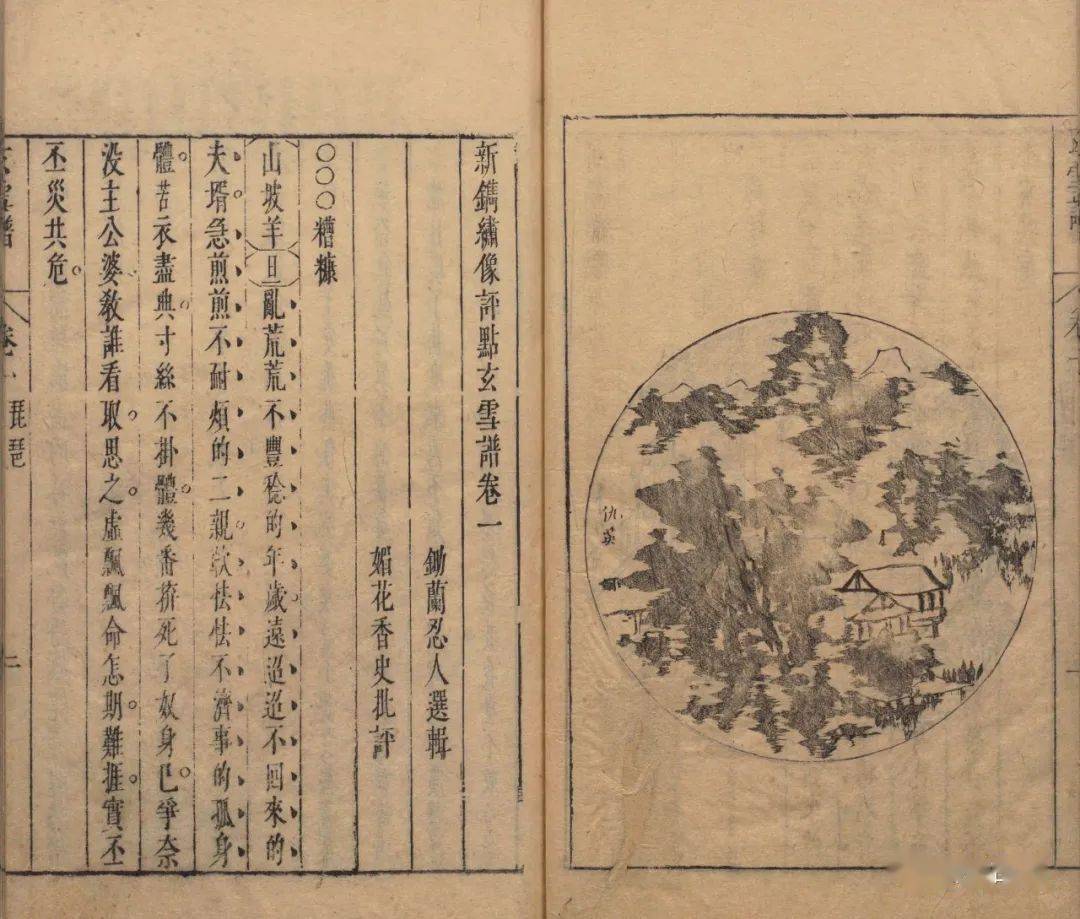 仇英
新鐫繡像評點玄雪譜卷一
鋤蘭忍人選輯
媚花香史批評
○○○糟糠
山坡羊 旦 亂荒荒不豐稔的年歲遠迢迢不回來的
夫壻急煎煎不耐煩的二親軟怯怯不濟事的孤身
體。苦衣盡典。寸絲不掛體。幾番拚死了奴身已。爭奈
没主公婆教誰看取。思之。虛飄飄命怎期。難捱。實丕
丕災共危。
玄雪譜 卷一 琵琶 二